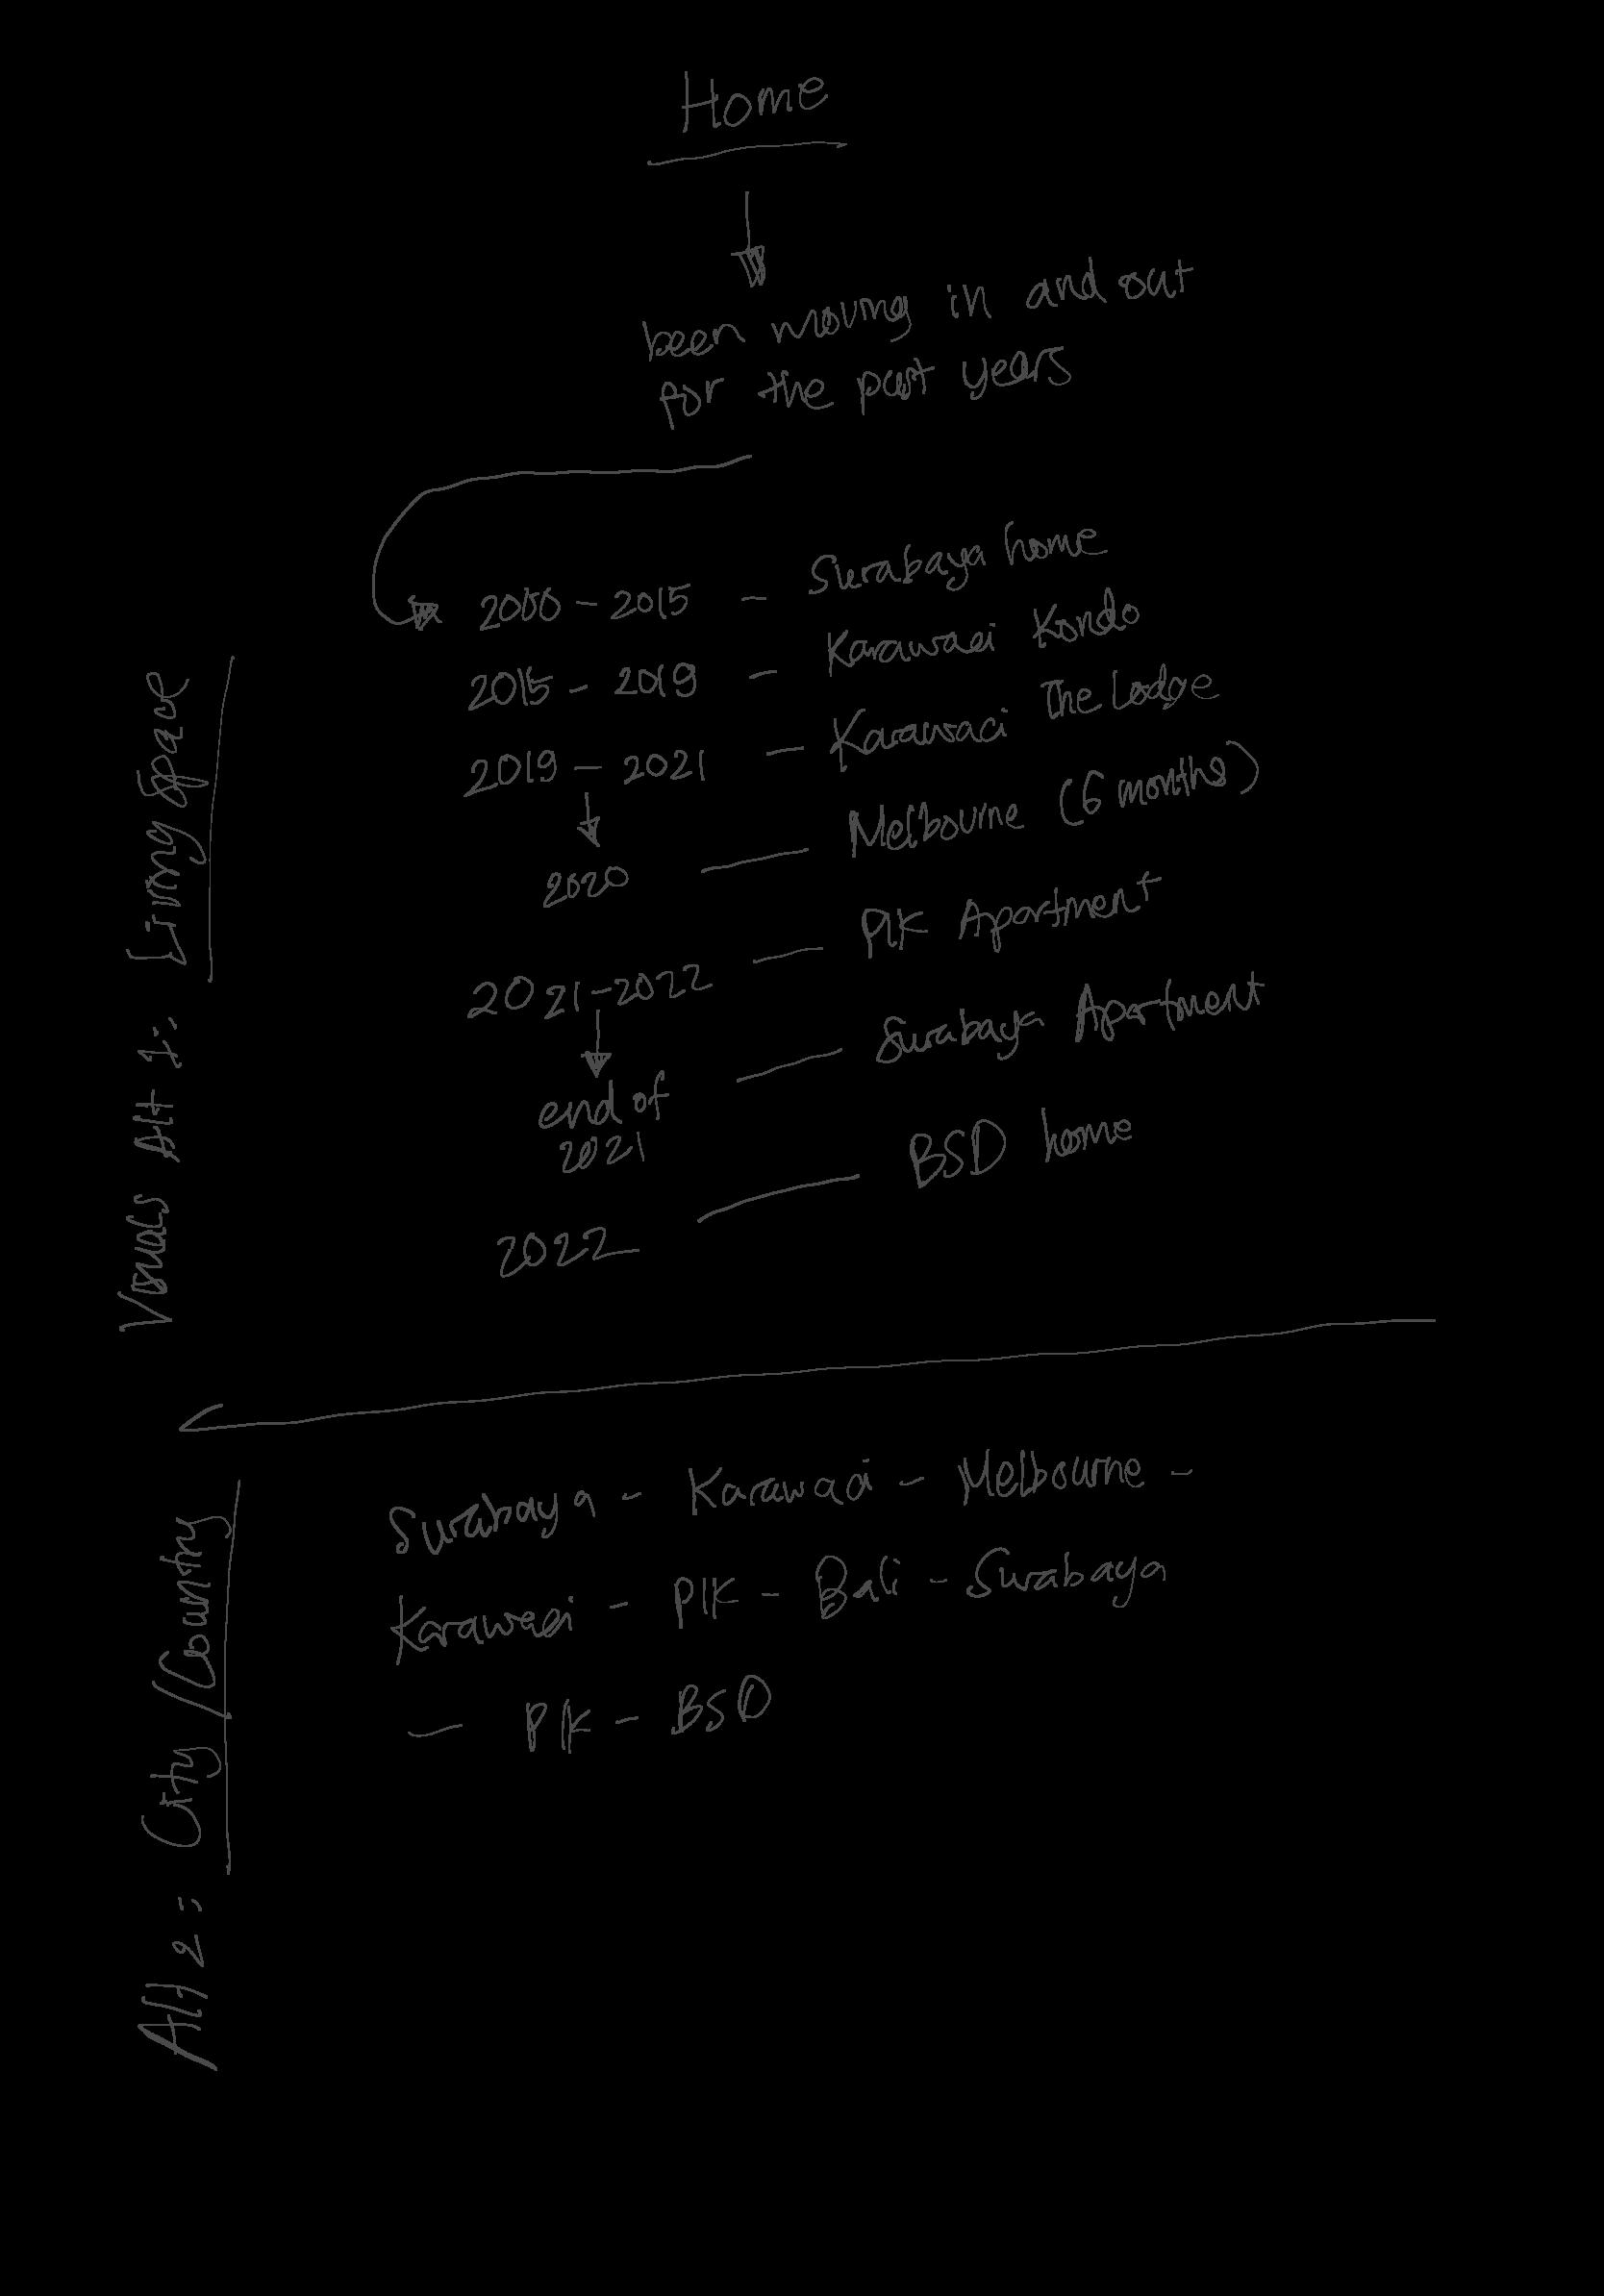 Home
been moving in and out
for the past years
Visuals Alt 1: Living Space
2000 - 2015 - Surabaya home
2015 - 2019 - Karawaci Kondo
2019 - 2021 - Karawaci The Lodge
2020 - Melbourne (6 months)
2021-2022 - PIK Apartment
end of
2021 - Surabaya Apartment
2022 - BSD home
Alt 2: City / Country
Surabaya - Karawaci - Melbourne -
Karawaci - PIK - Bali - Surabaya
- PIK - BSD